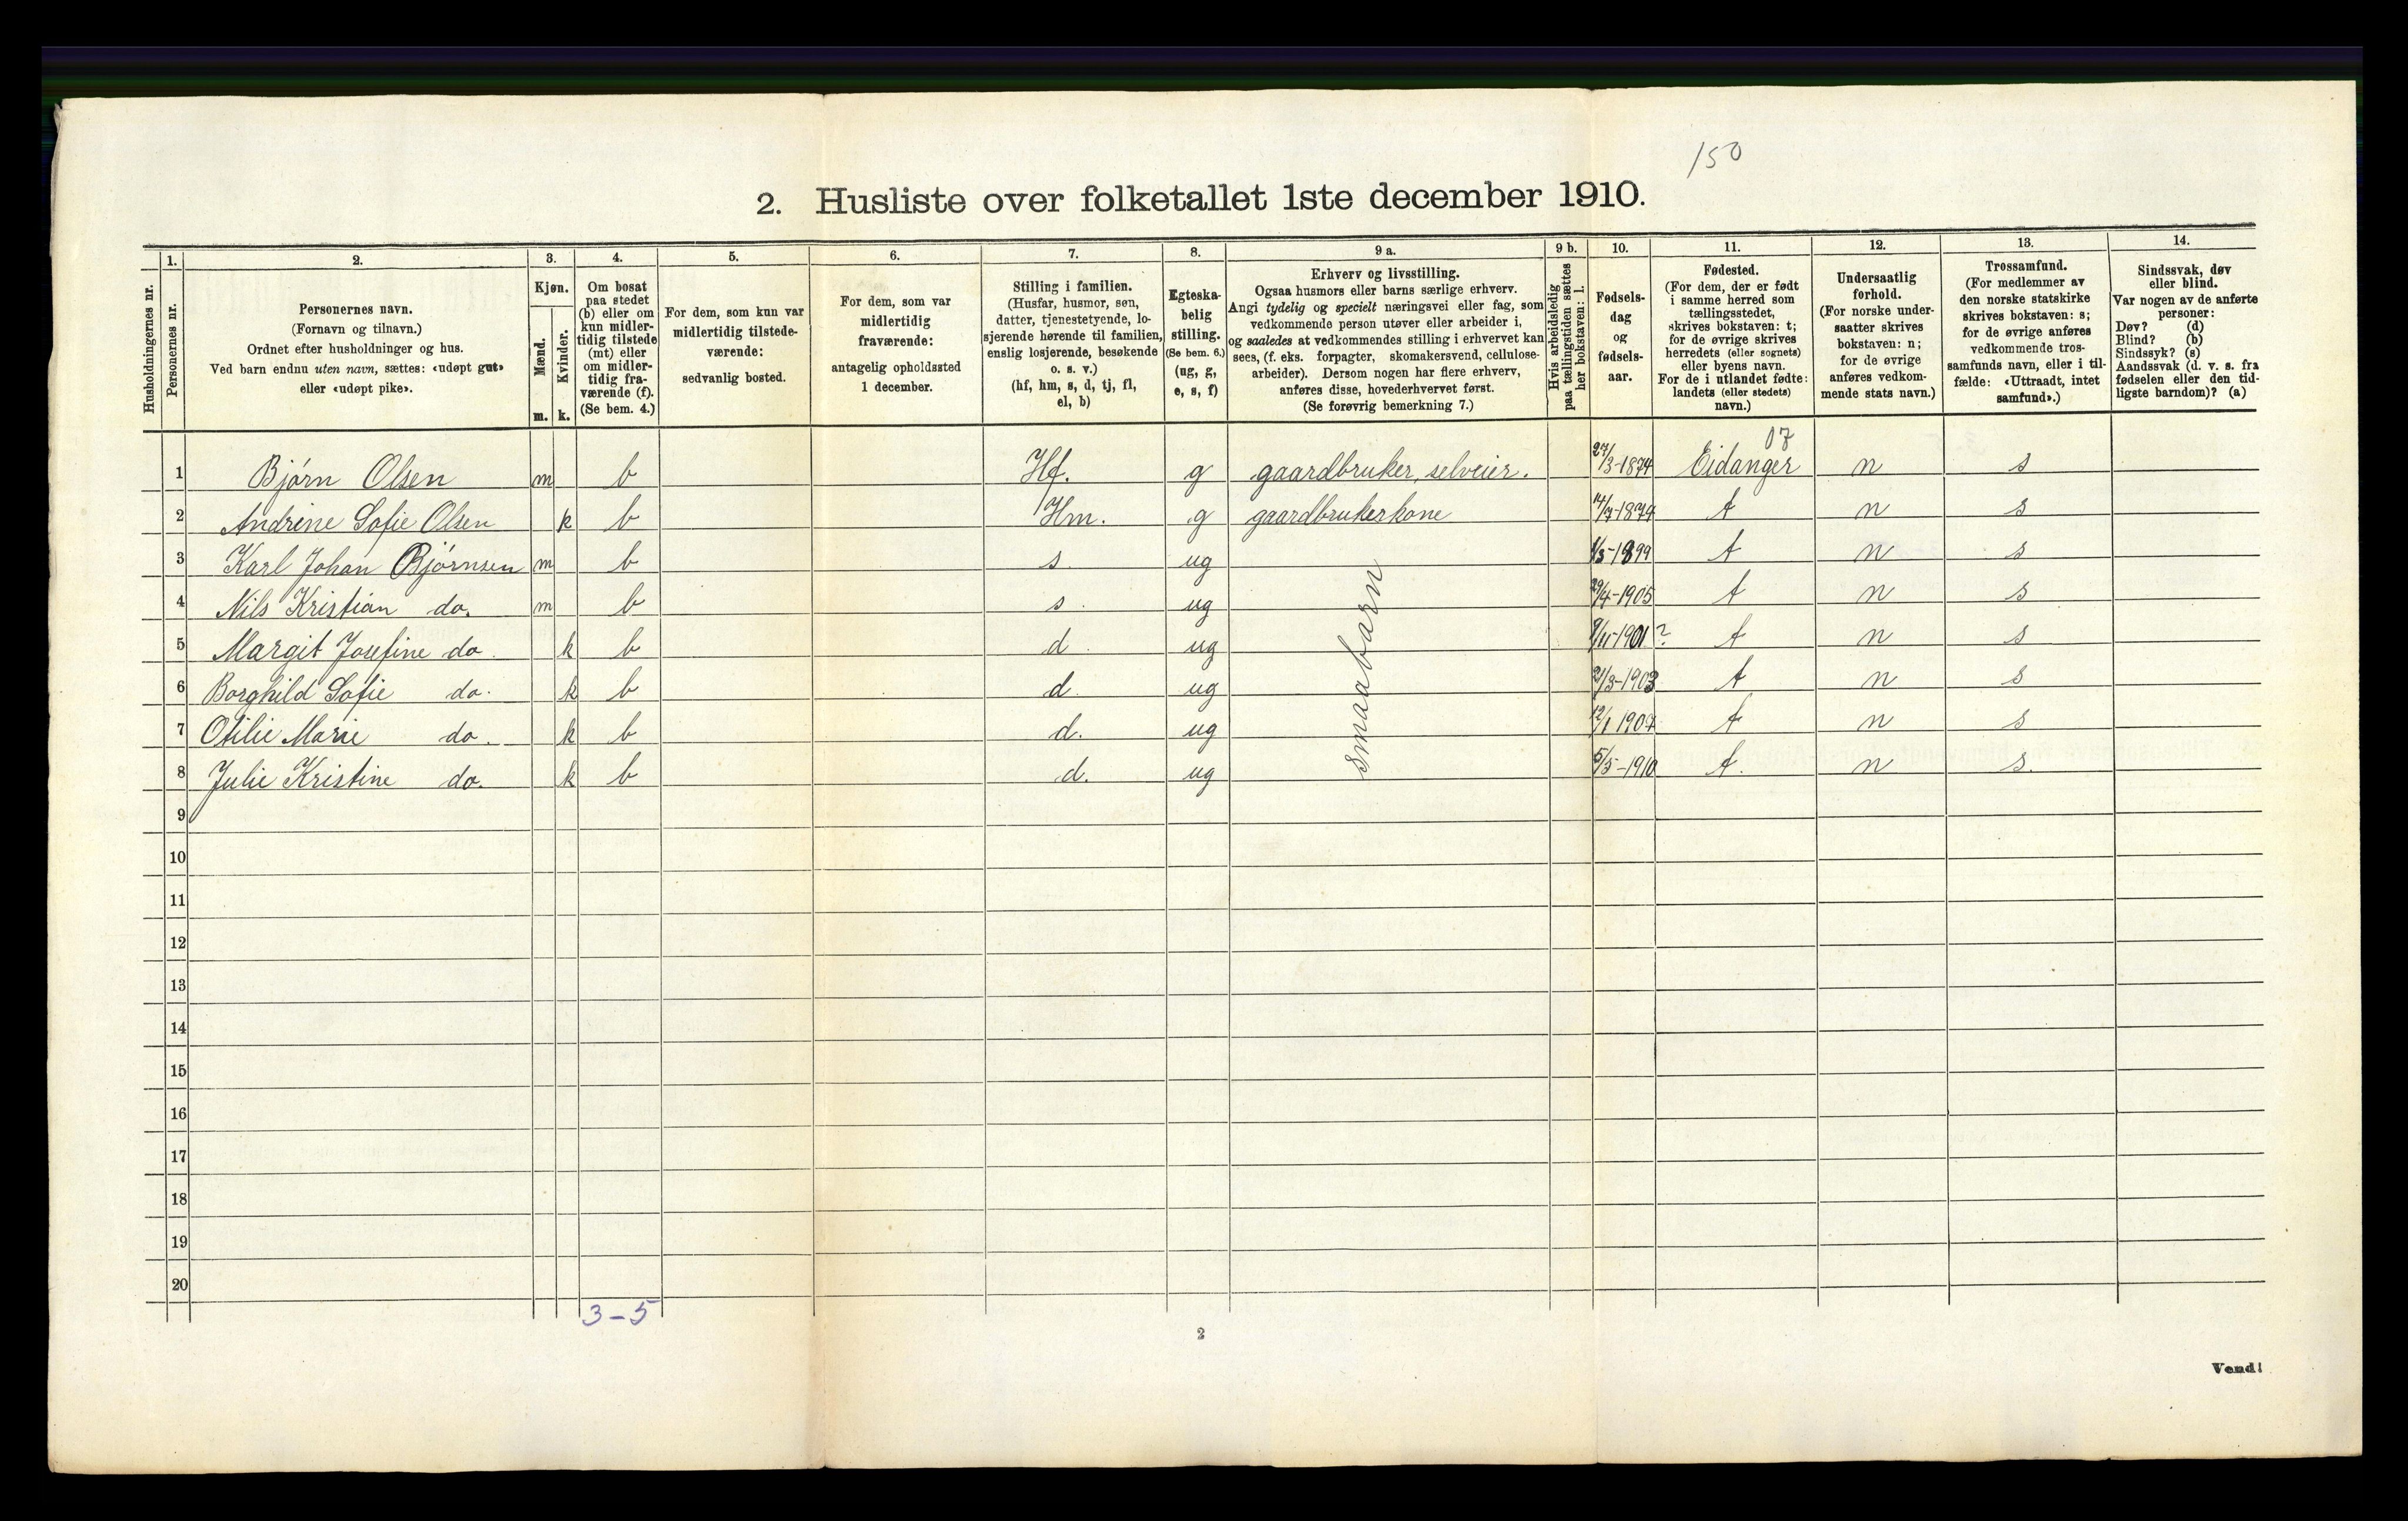 150
2. Husliste over folketallet 1ste december 1910.
Husholdningernes nr.
1.
Personernes nr.
2.
Personernes navn.
(Fornavn og tilnavn.)
Ordnet efter husholdninger og hus.
Ved barn endnu uten navn, sættes: «udøpt gut»
eller «udøpt pike».
3.
Kjøn.
Mænd.
m.
Kvinder.
k.
4.
Om bosat
paa stedet
(b) eller om
kun midler-
tidig tilstede
(mt) eller
om midler-
tidig fra-
værende (f).
(Se bem. 4.)
5.
For dem, som kun var
midlertidig tilstede-
værende:
sedvanlig bosted.
6.
For dem, som var
midlertidig
fraværende:
antagelig opholdssted
1 december.
7.
Stilling i familien.
(Husfar, husmor, søn,
datter, tjenestetyende, lo-
sjerende hørende til familien,
enslig losjerende, besøkende
o. s. v.)
(hf, hm, s, d, tj, fl,
el, b)
8.
Egteska-
belig
stilling.
(Se bem. 6.)
(ug, g,
e, s, f)
9 a.
Erhverv og livsstilling.
Ogsaa husmors eller barns særlige erhverv.
Angi tydelig og specielt næringsvei eller fag, som
vedkommende person utøver eller arbeider i,
og saaledes at vedkommendes stilling i erhvervet kan
sees, (f. eks. forpagter, skomakersvend, cellulose-
arbeider). Dersom nogen har flere erhverv,
anføres disse, hovederhvervet først.
(Se forøvrig bemerkning 7.)
9 b.
Hvis arbeidsledig
paa tællingstiden sættes
her bokstaven: l.
10.
Fødsels-
dag
og
fødsels-
aar.
11.
Fødested.
(For dem, der er født
i samme herred som
tællingsstedet,
skrives bokstaven: t;
for de øvrige skrives
herredets (eller sognets)
eller byens navn.
For de i utlandet fødte:
landets (eller stedets)
navn.)
12.
Undersaatlig
forhold.
(For norske under-
saatter skrives
bokstaven: n;
for de øvrige
anføres vedkom-
mende stats navn.)
13.
Trossamfund.
(For medlemmer av
den norske statskirke
skrives bokstaven: s;
for de øvrige anføres
vedkommende tros-
samfunds navn, eller i til-
fælde: «Uttraadt, intet
samfund».)
14.
Sindssvak, døv
eller blind.
Var nogen av de anførte
personer:
Døv? (d)
Blind? (b)
Sindssyk? (s)
Aandssvak (d. v. s. fra
fødselen eller den tid-
ligste barndom)? (a)
07
1 Bjørn Olsen m b Hf. g gaardbruker, selveier. 27/3-1874 Eidanger n s
2 Andrine Sofie Olsen k b Hm. g gaardbrukerkone 14/7-1879 t n s
3 Karl Johan Bjørnsen m b s. ug 1/3-1899 t n s
4 Nils Kristian do. m b s. ug 29/4-1905 t n s
5 Margit Josefine do. k b d. ug 9/11-1901 ? t n s
6 Borghild Sofie do. k b d. ug 21/3-1903 t n s
7 Otilie Marie do. k b d. ug 12/1 1907 t n s
8 Julie Kristine do. k b d. ug 5/5-1910 t. n s.
smaabarn
9
10
11
12
13
14
15
16
17
18
19
20
3-5
2
Vend!